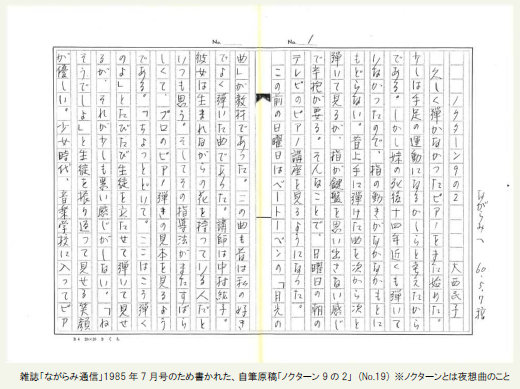 ながらみへ 60.5.7稿
No. 1
ノクターン9の2
大西民子
久しく弾かなかったピアノをまた始めた。
少しは手足の運動になるかしらと考えたから
である。しかし妹の死後十四年近くも弾いて
いなかったので、指の動きがなかなかもとに
もどらない。昔上手に弾けた曲を次から次と
弾いて見るが、指が鍵盤を思い出さない感じ
で辛抱が要る。そんなことで、日曜日の朝の
テレビのピアノ講座を見るようになった。
この前の日曜日はベートーベンの「月光の
No.
曲」が教材であった。この曲も昔は私の好き
でよく弾いた曲であった。講師は中村紘子。
彼女は生まれながらの花を持っている人だと
いつも思う。そしてその指導法がまたすばら
しくて、プロのピアノ弾きの見本を見るよう
である。「ちょっとどいて。ここはこう弾く
のよ」とたびたび生徒を立たせて弾いて見せ
るが、それが少しも悪い感じがしない。「ね、
そうでしょ」と生徒を振り返って見せる笑顔
が優しい。少女時代、音楽学校に入ってピア
雑誌「ながらみ通信」1985年7月号のため書かれた、自筆原稿「ノクターン9の2」（No.19）※ノクターンとは夜想曲のこと